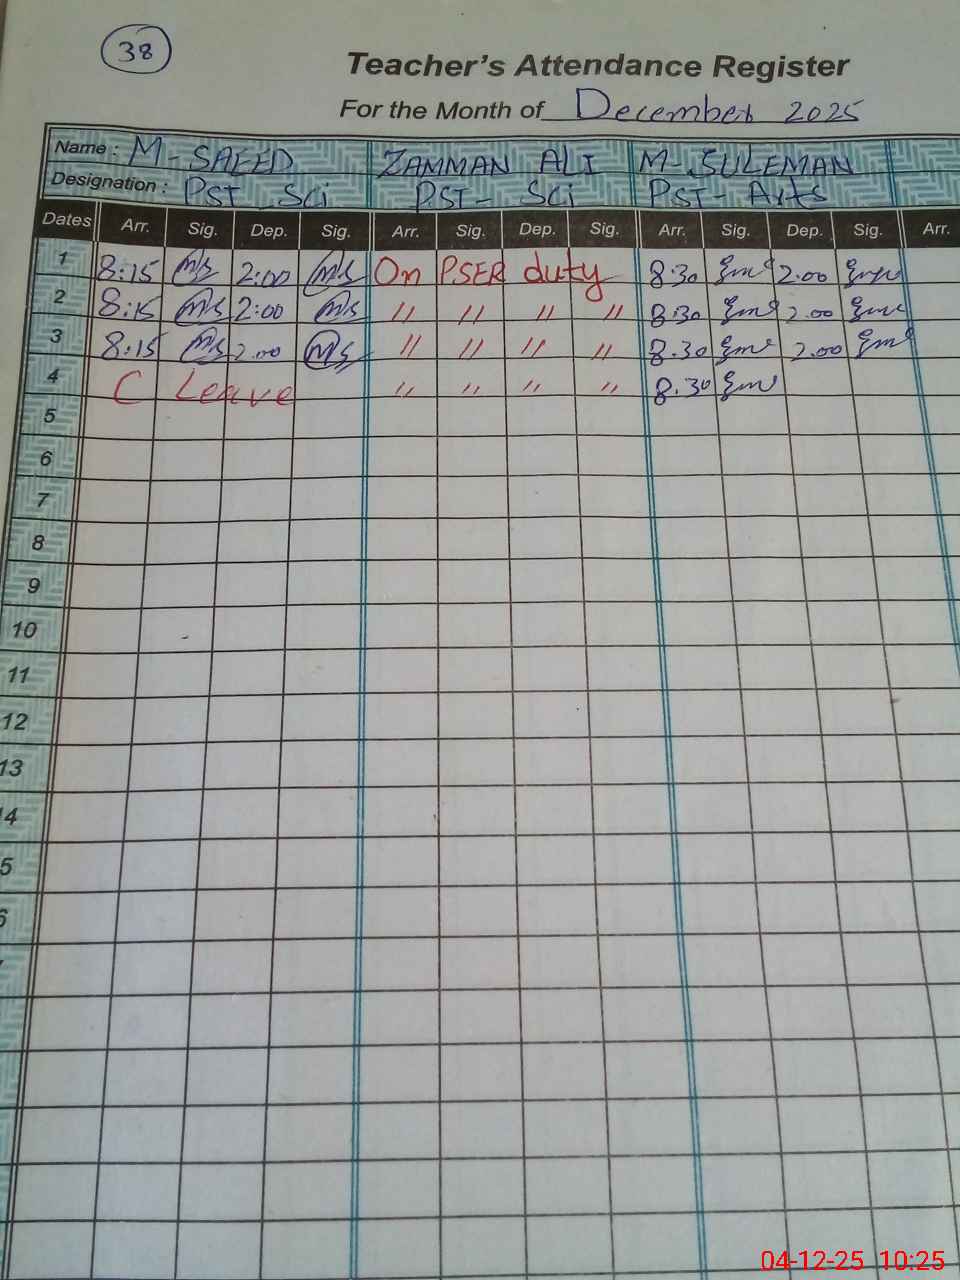 38
Teacher's Attendance Register
For the Month of December 2025
Name : M-SAEED ZAMMAN ALI M-SULEMAN
Designation : PST Sci PST- Sci PST- Arts
Dates Arr. Sig. Dep. Sig. Arr. Sig. Dep. Sig. Arr. Sig. Dep. Sig. Arr.
1 8:15 Ms 2:00 Ms On PSER duty 8:30 2.00
2 8:15 Ms 2:00 Ms " " " " 8:30 2.00
3 8:15 Ms 2.00 Ms " " " " 8.30 2.00
4 C Leave " " " " 8.30
5
6
7
8
9
10
11
12
13
14
5
6
04-12-25 10:25